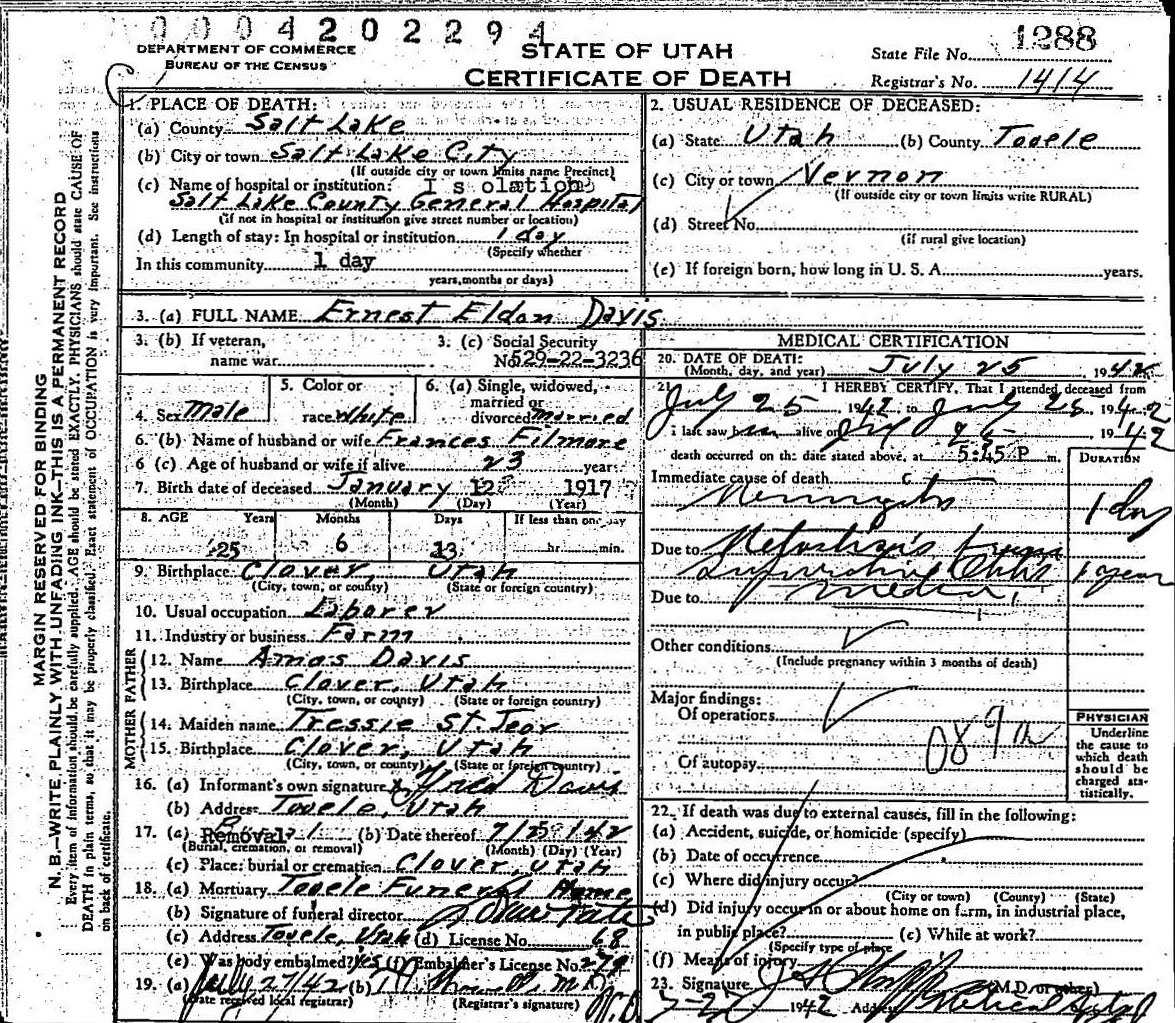 0004202294
DEPARTMENT OF COMMERCE
BUREAU OF THE CENSUS
STATE OF UTAH
CERTIFICATE OF DEATH
State File No. 1288
Registrar's No. 1414
1. PLACE OF DEATH:
(a) County Salt Lake
(b) City or town Salt Lake City
(If outside city or town limits name Precinct)
(c) Name of hospital or institution: Isolation
Salt Lake County General Hospital
(if not in hospital or institution give street number or location)
(d) Length of stay: In hospital or institution 1 day
(Specify whether
In this community 1 day
years, months or days)
2. USUAL RESIDENCE OF DECEASED:
(a) State Utah (b) County Tooele
(c) City or town Vernon
(If outside city or town limits write RURAL)
(d) Street No.
(if rural give location)
(e) If foreign born, how long in U. S. A. years.
3. (a) FULL NAME Ernest Eldon Davis
3. (b) If veteran,
name war
3. (c) Social Security
No. 529-22-3236
4. Sex Male
5. Color or
race White
6. (a) Single, widowed,
married or
divorced married
6. (b) Name of husband or wife Frances Filmore
6 (c) Age of husband or wife if alive 23 years
7. Birth date of deceased January 12 1917
(Month) (Day) (Year)
8. AGE Years Months Days If less than one day
25 6 13 hr. min.
9. Birthplace Clover, Utah
(City, town, or county) (State or foreign country)
10. Usual occupation Laborer
11. Industry or business Farm
FATHER
12. Name Amos Davis
13. Birthplace Clover, Utah
(City, town, or county) (State or foreign country)
MOTHER
14. Maiden name Tressie St. Jeor
15. Birthplace Clover, Utah
(City, town, or county) (State or foreign country)
16. (a) Informant's own signature Davis
(b) Address Tooele, Utah
17. (a) Removal (b) Date thereof 7/25/42
(Burial, cremation, or removal) (Month) (Day) (Year)
(c) Place: burial or cremation Clover, Utah
18. (a) Mortuary Tooele Funeral Home
(b) Signature of funeral director
(c) Address Tooele, Utah (d) License No. 68
(e) Was body embalmed? Yes (f) Embalmer's License No. 279
19. (a) July 27/42 (b)
(Date received local registrar) (Registrar's signature)
MEDICAL CERTIFICATION
20. DATE OF DEATH: July 25, 1942
(Month, day, and year)
21. I HEREBY CERTIFY, That I attended deceased from
July 25 1942 to July 25 1942
I last saw him alive on July 25 1942
death occurred on the date stated above, at 5:45 P m.
DURATION
Immediate cause of death
Meningitis 1 day
Due to Metastasis from
Suppurative Otitis 1 year
Due to Media
Other conditions
(Include pregnancy within 3 months of death)
Major findings:
Of operations
089a
Of autopsy
PHYSICIAN
Underline
the cause to
which death
should be
charged sta-
tistically.
22. If death was due to external causes, fill in the following:
(a) Accident, suicide, or homicide (specify)
(b) Date of occurrence
(c) Where did injury occur?
(City or town) (County) (State)
(d) Did injury occur in or about home on farm, in industrial place,
in public place? (e) While at work?
(Specify type of place
(f) Means of injury
23. Signature (M.D. or other)
7-25 1942 Address
MARGIN RESERVED FOR BINDING
N. B.—WRITE PLAINLY WITH UNFADING INK—THIS IS A PERMANENT RECORD
Every item of information should be carefully supplied. AGE should be stated EXACTLY. PHYSICIANS should state CAUSE OF
DEATH in plain terms, so that it may be properly classified. Exact statement of OCCUPATION is very important. See instructions
on back of certificate.